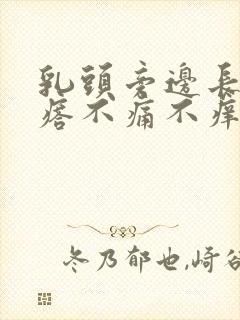 乳頭旁邊長
痞不痛不痒
冬乃郁也,崎谷